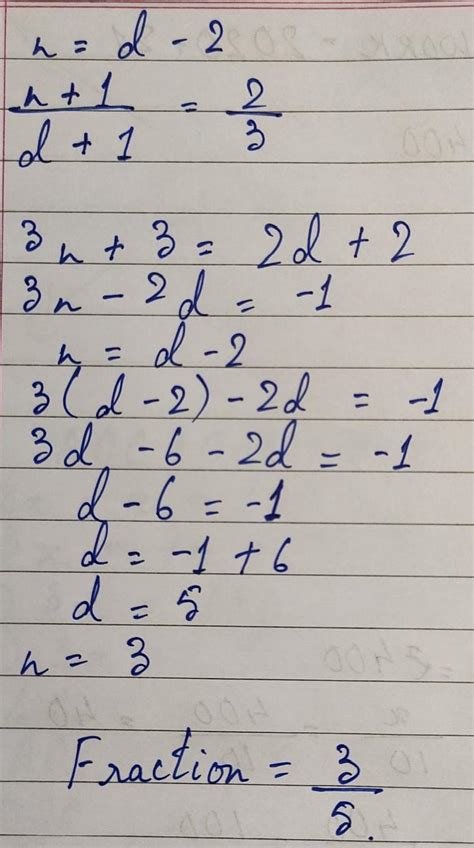 n = d - 2
n + 1 / d + 1 = 2 / 3
3n + 3 = 2d + 2
3n - 2d = -1
n = d - 2
3(d - 2) - 2d = -1
3d - 6 - 2d = -1
d - 6 = -1
d = -1 + 6
d = 5
n = 3
Fraction = 3 / 5.